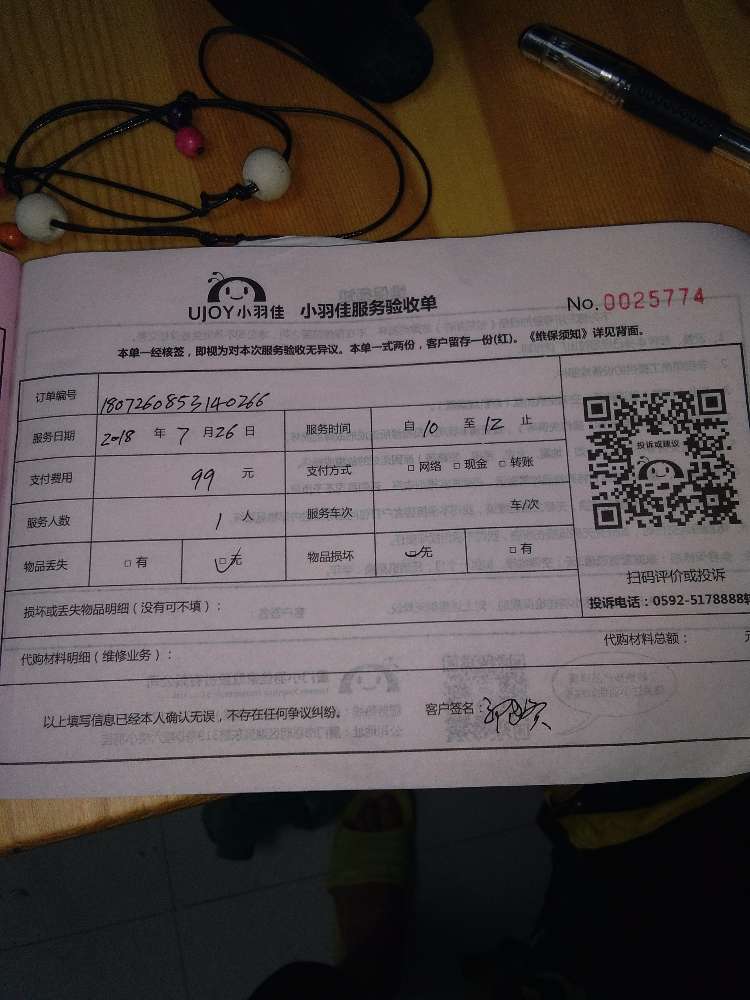 UJOY小羽佳 小羽佳服务验收单 No. 0025774
本单一经核签，即视为对本次服务验收无异议。本单一式两份，客户留存一份(红)。《维保须知》详见背面。
订单编号 1807260853140266
服务日期 2018 年 7 月 26 日 服务时间 自 10 至 12 止
投诉或建议
支付费用 99 元 支付方式 □ 网络 □ 现金 □ 转账
服务人数 1 人 服务车次 车/次
物品丢失 □ 有 □ 无 物品损坏 □ 无 □ 有
扫码评价或投诉
损坏或丢失物品明细（没有可不填）： 投诉电话：0592-5178888转
代购材料明细（维修业务）： 代购材料总额： 元
以上填写信息已经本人确认无误，不存在任何争议纠纷。 客户签名：